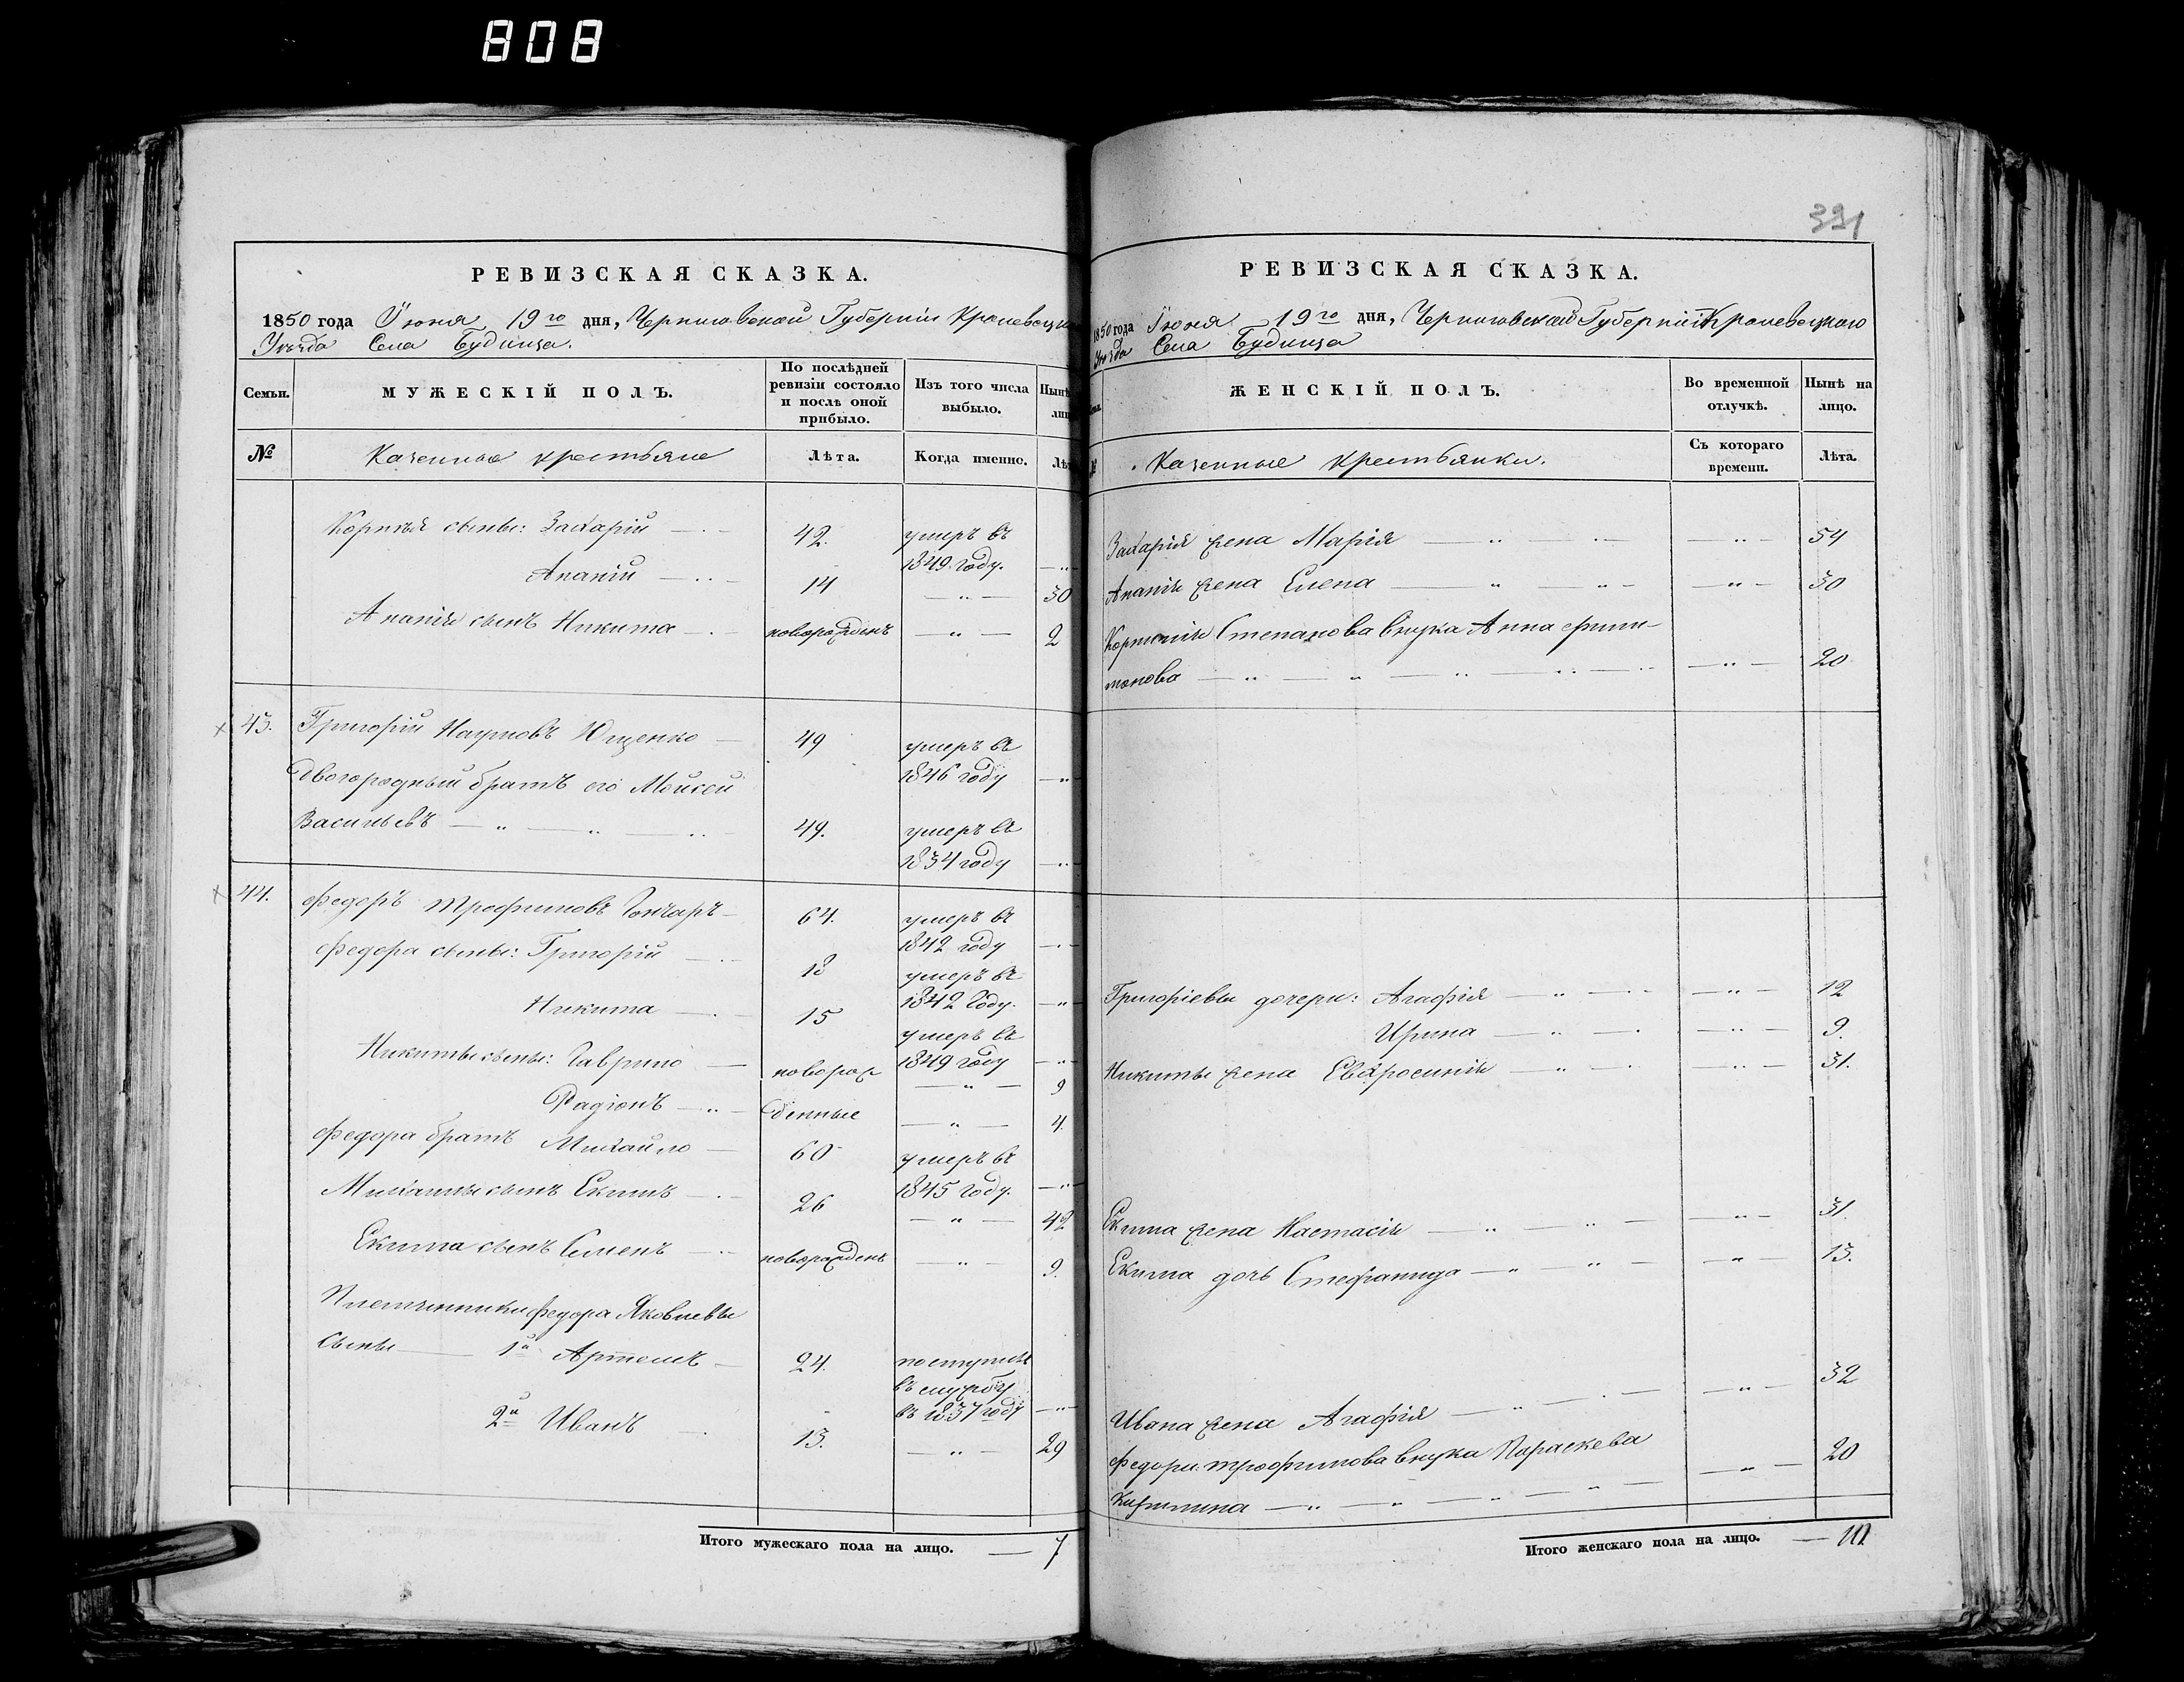 808
РЕВИЗСКАЯ СКАЗКА.
1850 года Іюня 19го дня, Черниговской Губерніи Кролевецкаго
Уѣзда Села Будища.
Семьи.
МУЖЕСКІЙ ПОЛЪ.
По послѣдней
ревизіи состояло
и послѣ оной
прибыло.
Изъ того числа
выбыло.
Нынѣ
лиц
№
Казенные крестьяне
Лѣта.
Когда именно.
Лѣт
Корнѣя сыны: Захарій 42. умеръ въ
1849 году.
Ананій 14 30
Ананія сынъ Никита новорожденъ 2
43. Григорій Наумовъ Ющенко 49 умеръ въ
1846 году
Двогородный братъ его Мойсей
Васильевъ 49. умеръ въ
1834 году
44. Федоръ Трофимовъ Гончаръ 64. умеръ въ
1842 году
Федора сыны: Григорій 18 умеръ въ
1842 году.
Никита 15 умеръ въ
1849 году
Никиты сыны: Гаврило новорож 9
Радіонъ денные 4.
Федора братъ Михайло 60 умеръ въ
1845 году.
Михайлы сынъ Екимъ 26 42
Екима сынъ Семенъ новорожденъ 9.
Племянники Федора Яковлевы
сыны 1й Артемъ 24. поступилъ
въ службу
въ 1837 году
2й Иванъ 13. 29
Итого мужескаго пола на лицо. 7
391
РЕВИЗСКАЯ СКАЗКА.
1850 года Іюня 19го дня, Черниговской Губерніи Кролевецкаго
Уѣзда Села Будища
ЖЕНСКІЙ ПОЛЪ.
Во временной
отлучкѣ.
Нынѣ на
лицо.
Казенные крестьянки.
Съ котораго
времени.
Лѣта.
Захарія жена Марія 54
Ананія жена Елена 30
Степанова внука Анна Фили-
монова 20
Григоріевы дочери: Агафія 12
Ирина 9.
Никиты жена Евфросинія 31.
Екима жена Настасія 31.
Екима дочь Стефанида 13.
Ивана жена Агафія 32
Федора Трофимова внука Параскева 20
Итого женскаго пола на лицо. 10